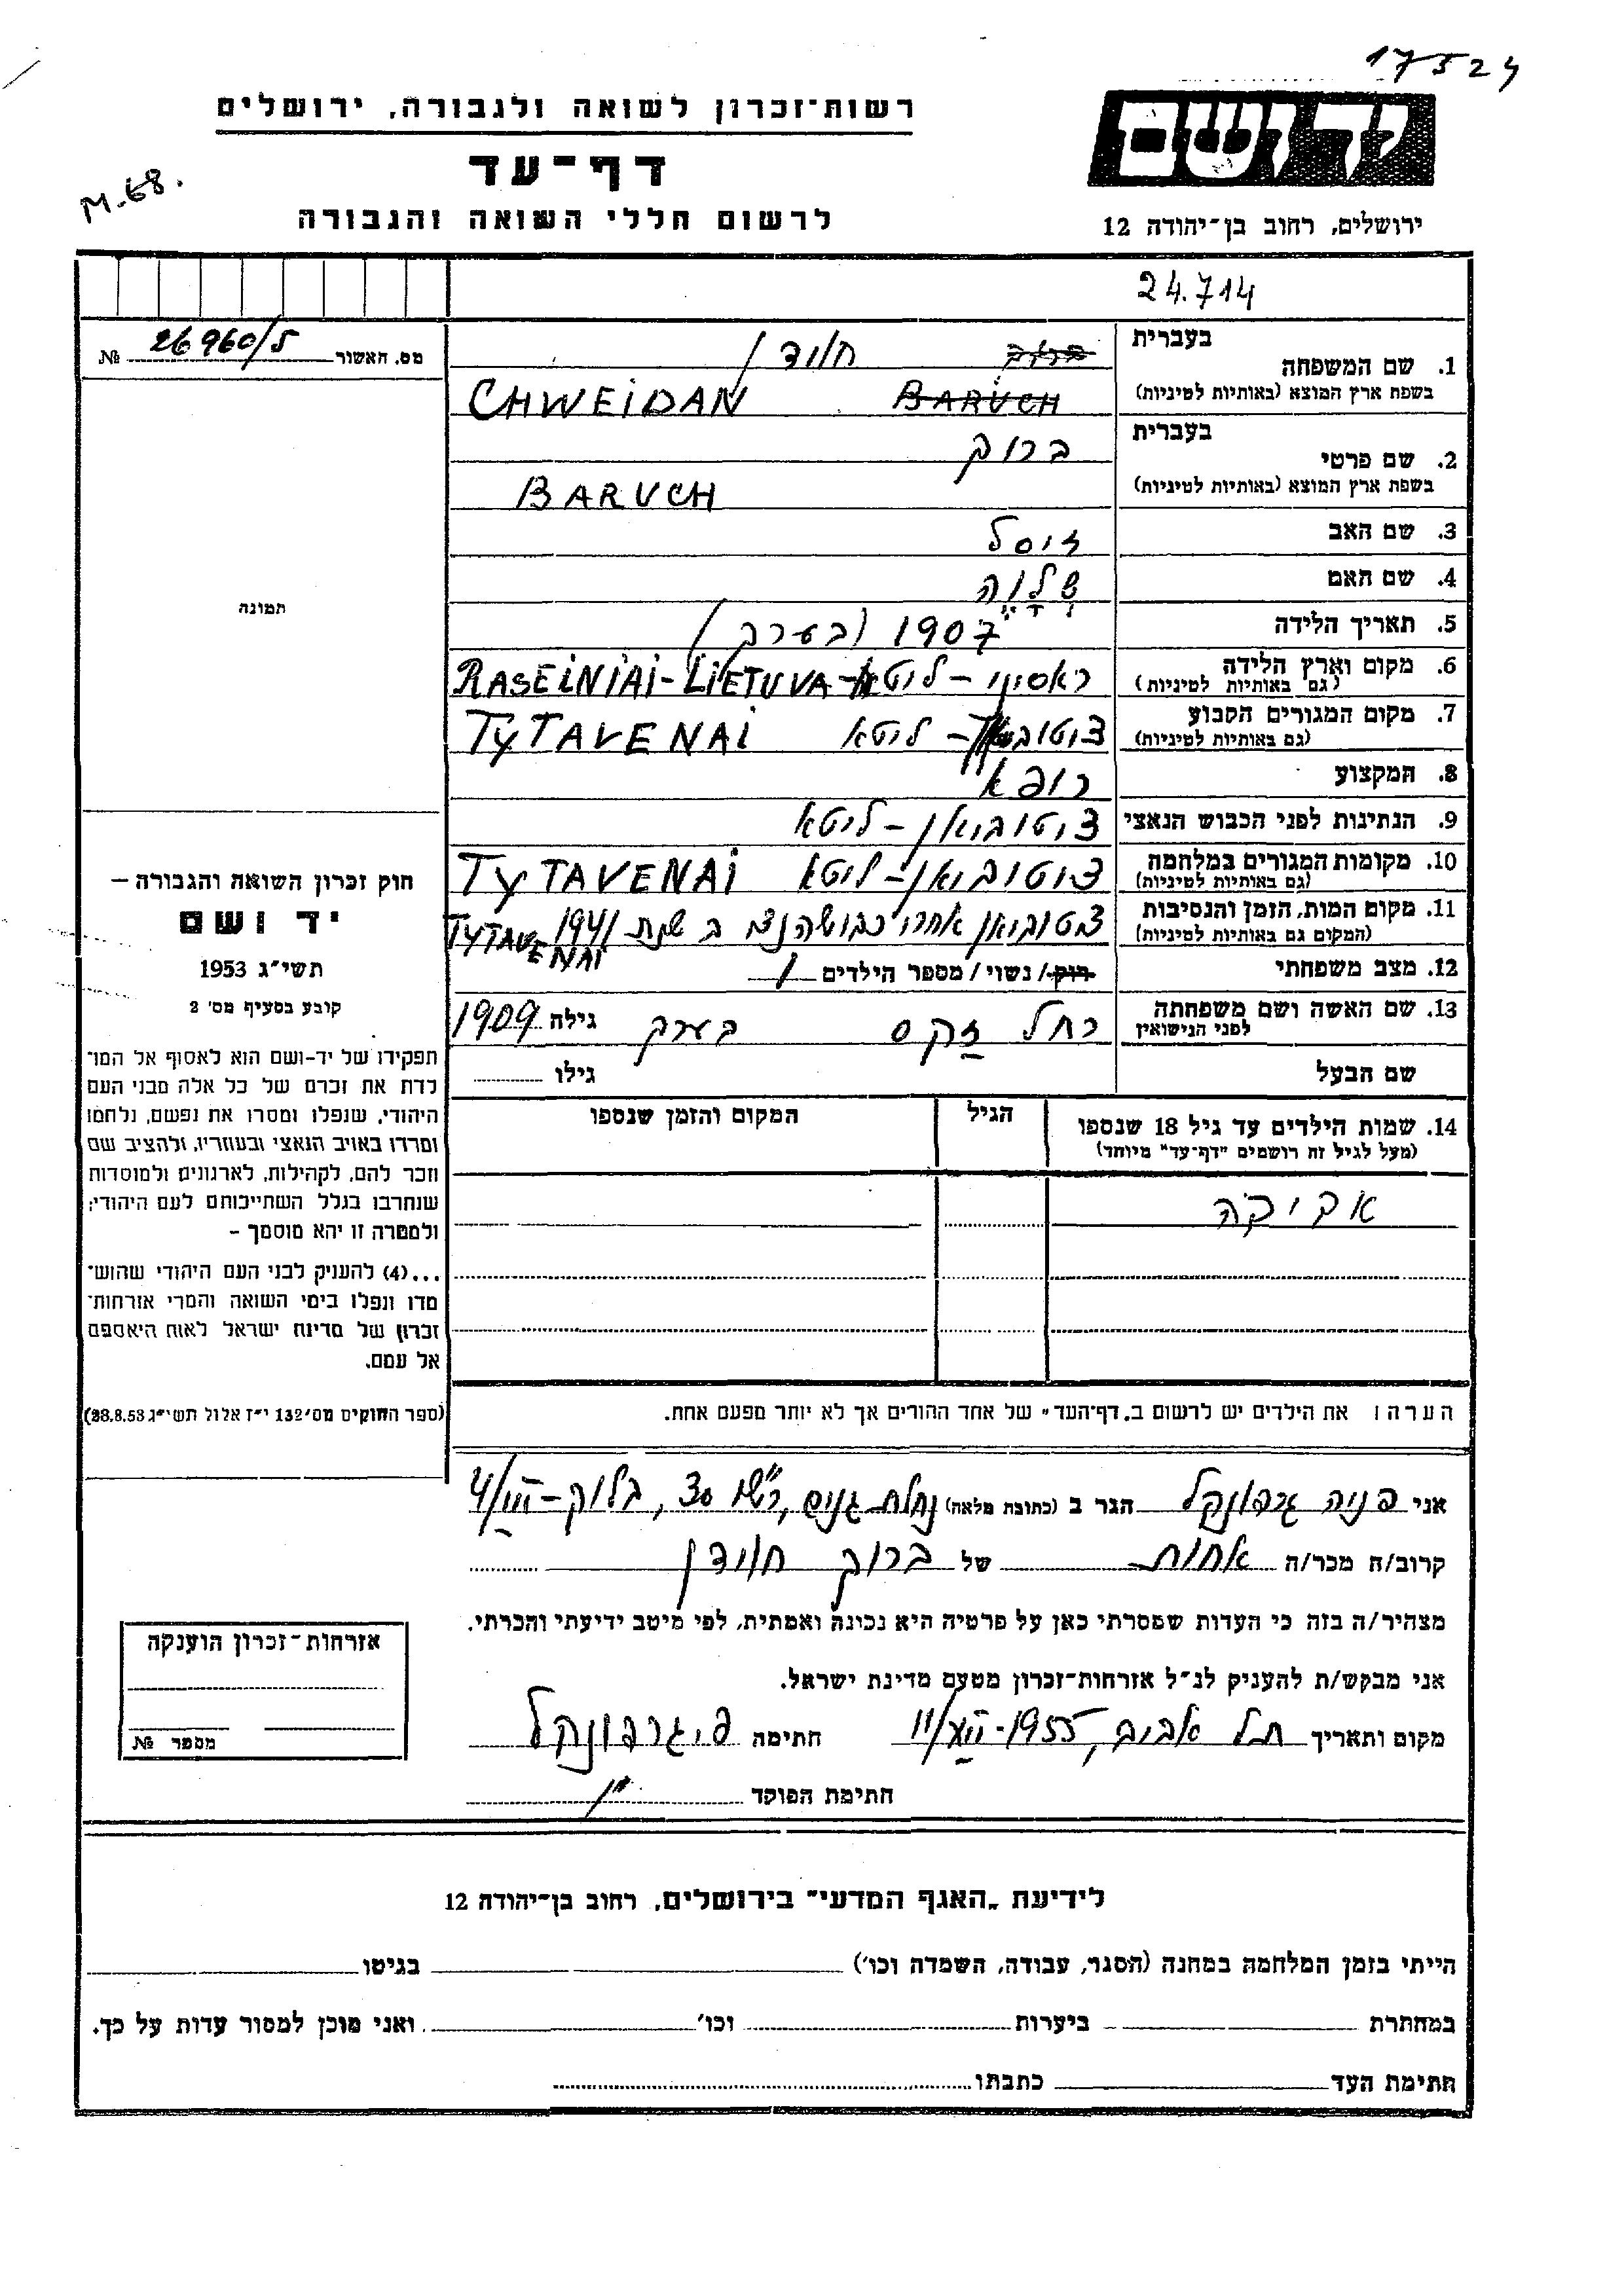 17524
רשות־זכרון לשואה ולגבורה, ירושלים
יד ושם
דף־עד
M-68.
לרשום חללי השואה והגבורה
ירושלים, רחוב בן־יהודה 12
24.714
מס. האשור 26960/5 №
בעברית
1. שם המשפחה ברוך חוידן
בשפת ארץ המוצא (באותיות לטיניות) BARUCH CHWEIDAN
בעברית
2. שם פרטי ברוך
בשפת ארץ המוצא (באותיות לטיניות) BARUCH
3. שם האב זוסל
4. שם האם
תמונה
5. תאריך הלידה 1907 (בערך)
6. מקום וארץ הלידה ראסיין – ליטא – RASEINIAI-LIETUVA
(גם באותיות לטיניות)
7. מקום המגורים הקבוע ליטא TYTAVENAI
(גם באותיות לטיניות)
8. המקצוע רופא
9. הנתינות לפני הכבוש הנאצי ציטוביאן – ליטא
10. מקומות המגורים במלחמה ציטוביאן – ליטא TYTAVENAI
(גם באותיות לטיניות)
11. מקום המות, הזמן והנסיבות צטוביאן אחרי בשנת 1941 TYTAVENAI
(המקום גם באותיות לטיניות)
12. מצב משפחתי רוק / נשוי / מספר הילדים 1
13. שם האשה ושם משפחתה רחל זקס גילה בערך 1909
לפני הנישואין
שם הבעל גילו
14. שמות הילדים עד גיל 18 שנספו הגיל המקום והזמן שנספו
(מעל לגיל זה רושמים "דף־עד" מיוחד)
אביבה
הערה: את הילדים יש לרשום ב„דף־העד" של אחד ההורים אך לא יותר מפעם אחת.
חוק זכרון השואה והגבורה –
יד ושם
תשי"ג 1953
קובע בסעיף מס' 2
תפקידו של יד־ושם הוא לאסוף אל המו־
לדת את זכרם של כל אלה מבני העם
היהודי, שנפלו ומסרו את נפשם, נלחמו
ומרדו באויב הנאצי ובעוזריו, ולהציב שם
וזכר להם, לקהילות, לארגונים ולמוסדות
שנחרבו בגלל השתייכותם לעם היהודי;
ולמטרה זו יהא מוסמך –
...(4) להעניק לבני העם היהודי שהוש־
מדו ונפלו בימי השואה והמרי אזרחות־
זכרון של מדינת ישראל לאות היאספם
אל עמם.
(ספר החוקים מס' 132 י"ז אלול תשי"ג 28.8.53)
אני פניה גרפונקל הגר ב (כתובת מלאה) נחלת גנים, 30, בלוק – 4/VII
קרוב/ה מכר/ה אחות של ברוך חוידן
מצהיר/ה בזה כי העדות שמסרתי כאן על פרטיה היא נכונה ואמתית, לפי מיטב ידיעתי והכרתי.
אני מבקש/ת להעניק לנ"ל אזרחות־זכרון מטעם מדינת ישראל.
מקום ותאריך תל אביב, 1955 חתימה פ. גרפונקל
חתימת הפוקד
אזרחות־זכרון הוענקה
מספר №
לידיעת „האגף המדעי" בירושלים, רחוב בן־יהודה 12
הייתי בזמן המלחמה במחנה (הסגר, עבודה, השמדה וכו') בגיטו
במחתרת ביערות וכו' ואני מוכן למסור עדות על כך.
חתימת העד כתבתו